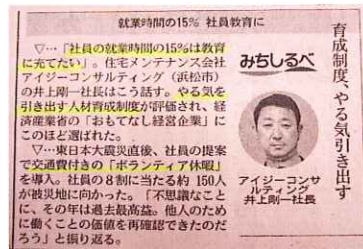 就業時間の15% 社員教育に
育成制度、やる気引き出す
みちしるべ
▽…「社員の就業時間の15%は教育
に充てたい」。住宅メンテナンス会社
アイジーコンサルティング(浜松市)
の井上剛一社長はこう話す。やる気を
引き出す人材育成制度が評価され、経
済産業省の「おもてなし経営企業」に
このほど選ばれた。
▽…東日本大震災直後、社員の提案
で交通費付きの「ボランティア休暇」
を導入。社員の8割に当たる約150人
が被災地に向かった。「不思議なこと
に、その年は過去最高益。他人のため
に働くことの価値を再確認できたのだ
ろう」と振り返る。
アイジーコンサ
ルティング
井上剛一社長